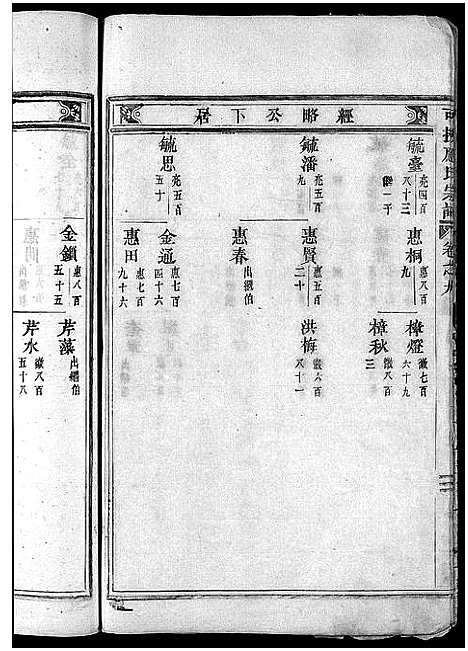 經略公下居
毓臺 亮四百八十三
毓潘 亮五百九
毓思 亮五百五十
惠桐 九
惠賢 惠五百二十
惠春 出繼伯
金通 惠六百四十六
惠田 惠七百九十六
金鎖 惠八百五十五
樟燈 徽七百六十九
樟秋 徽八百三
洪梅 徽六百八十一
芹藻 出繼伯
芹水 徽八百五十八
卷之九